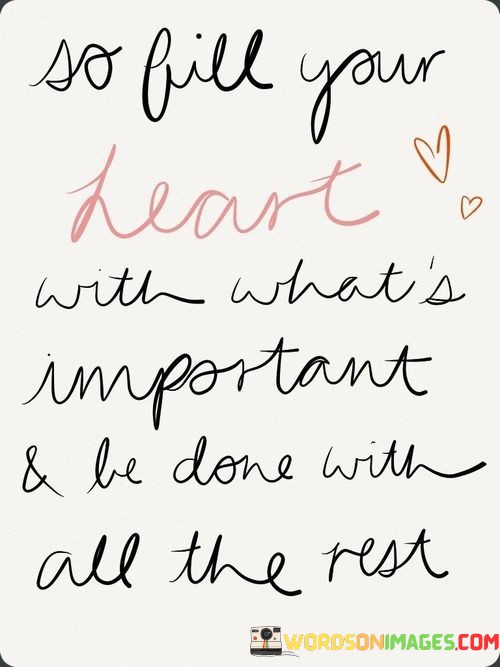 so fill your
heart
with what's
important
& be done with
all the rest
WORDSONIMAGES.COM